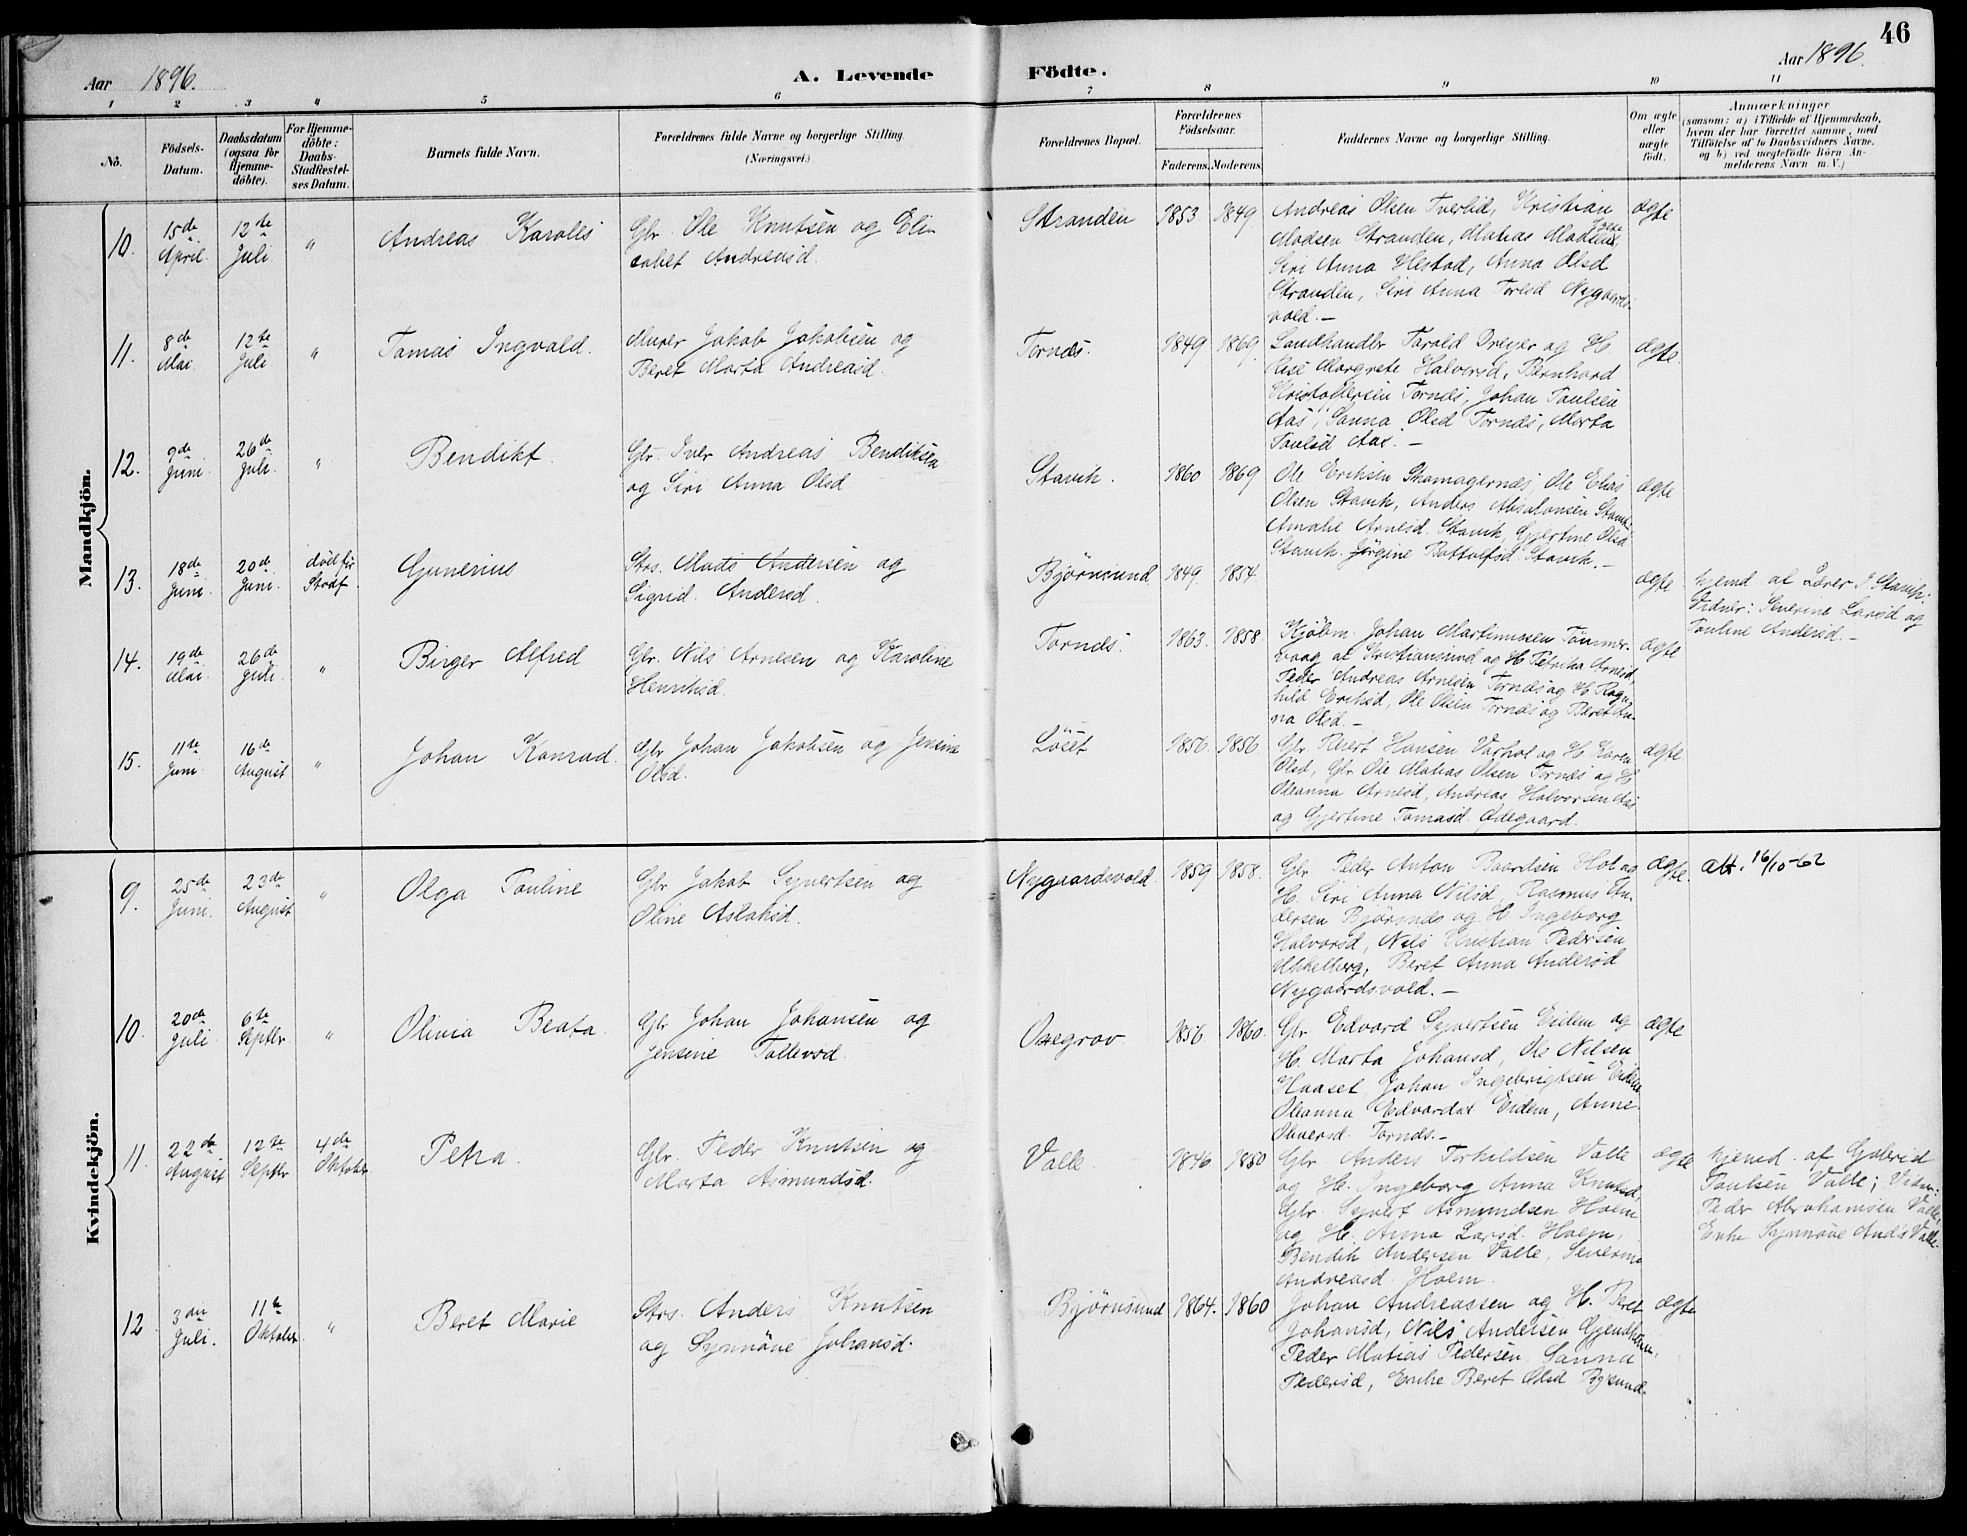 46
Aar 1896.
A. Levende
Födte.
Aar 1896.
1 2 3 4 5 6 7 8 9 10 11
No.
Födsels-
Datum.
Daabsdatum
(ogsaa for
Hjemme-
döbte).
For Hjemme-
döbte:
Daabs-
Stadfestel-
ses Datum.
Barnets fulde Navn.
Forældrenes fulde Navne og borgerlige Stilling.
(Næringsvei.)
Forældrenes Bopæl.
Forældrenes
Födselsaar.
Faderens. Moderens.
Faddernes Navne og borgerlige Stilling.
Om ægte
eller
uægte
födt.
Anmærkninger
(saasom: a) i Tilfælde af Hjemmedaab,
hvem der har forrettet samme, med
Tilföielse af to Daabsvidners Navne,
og b) ved uægtefödte Börn An-
melderens Navn m. V.)
Mandkjön.
10.
15de
April.
12te
Juli
"
Andreas Karolus
Gbr. Ole Knutsen og Eli-
sabet Andreasd.
Stranden
1853
1849.
Andreas Olsen Tverlid, Kristian
Madsen Stranden, Matias Madsen,
Siri Anna Hestad, Anna Olsd
Stranden, Siri Anna Toresd Nygaards-
vold. —
ægte
11.
8de
Mai.
12te
Juli
"
Tomas Ingvald.
Murer Jakob Jakobsen og
Beret Marta Andreasd.
Tornes.
1849
1869.
Landhandler Torald Dreyer og H.
Rise Margrete Halvorsd, Bernhard
Kristoffersen Tornes, Johan Paulsen
Aas, Sanna Olsd Tornes, Marta
Paulsd Aas. —
ægte.
12.
9de
Juni.
26de
Juli.
"
Bendikt.
Gbr. Iver Andreas Bendiksen
og Siri Anna Olsd
Stavik.
1860
1869
Ole Eriksen Skamagernes, Ole Elias
Olsen Stavik, Anders Absalonsen Stavik
Amalie Arnesd. Stavik, Gjertine Olsd
Stavik. Jørgine Bottolfsd. Stavik. —
ægte
13.
18de
Juni.
20de
Juni.
död för
Stadf.
Gunerius
Strs. Mads Andersen og
Sigrid. Andersd.
Björnsund
1849.
1854.
ægte
hjemd. af Lærer J. Stavik;
Vidner: Severine Larsd og
Pauline Andersd. —
14.
19de
Mai.
26de
Juli.
"
Birger Alfred
Gbr. Nils Arnesen og Karoline
Henriksd.
Tornes.
1863.
1858.
Kjöbm. Johan Martinussen Tömmer-
vaag af Kristiansund og H. Petrika Arnesd,
Peder Andreas Arnesen Tornes og H. Ragn-
hild Eriksd, Ole Olsen Tornes og Beret An-
na Olsd. —
ægte
15.
11te
Juni
16de
August
"
Johan Konrad.
Gbr. Johan Jakobsen og Jensine
Olsd.
Löset
1856.
1856.
Gbr. Reiert Hansen Varhol og H. Karen
Olsd, Gbr. Ole Matias Olsen Tornes og H.
Oleanna Arnesd, Andreas Halvorsen Aas
og Gjertine Tomasd. Ödegaard.
ægte.
Kvindekjön.
9.
25de
Juni.
23de
August
"
Olga Pauline
Gbr. Jakob Syvertsen og
Oline Aslaksd.
Nygaardsvold.
1859
1858.
Gbr. Peder Anton Baardsen Hol og
H. Siri Anna Nilsd, Rasmus An-
dersen Björsnes og H. Ingeborg
Halvorsd, Nils Kristian Pedersen
Ukkelberg, Beret Anna Andersd
Nygaardsvold. —
ægte.
att. 16/10-62
10.
20de
Juli
6te
Septbr
"
Olivia Beata.
Gbr. Johan Johansen og
Jensine Tollevsd.
Osegrov.
1856.
1860.
Gbr. Edvard Syvertsen Eidem og
H. Marta Johansd, Ole Nilsen
Haaset, Johan Ingebrigtsen Eidem
Oleanna Edvardsd Eidem, Anne
Oliversd. Tornes. —
ægte
11.
22de
August
12te
Septbr
4de
Oktober
Petra
Gbr. Peder Knutsen og
Marta Asmundsd.
Valle.
1846
1850
Gbr. Anders Torkildsen Valle
og H. Ingeborg Anna Knutsd,
Gbr. Syvert Asmundsen Hoem
og H. Anna Larsd. Hoem,
Bendik Andersen Valle, Severine
Andreasd. Hoem.
ægte
hjemd. af Gabriel
Paulsen Valle; Vidner:
Peder Abrahamsen Valle,
Enke Synnöve Andsd Valle.
12
3die
Juli.
11te
Oktober.
"
Beret Marie
Strs. Anders Knutsen
og Synnöve Johansd.
Björnsund
1864.
1860
Johan Andreassen og H. Beret
Johansd, Nils Andersen Gjendhem,
Peder Matias Pedersen, Sanna
Pedersd, Enke Beret Olsd Bjsund.
ægte